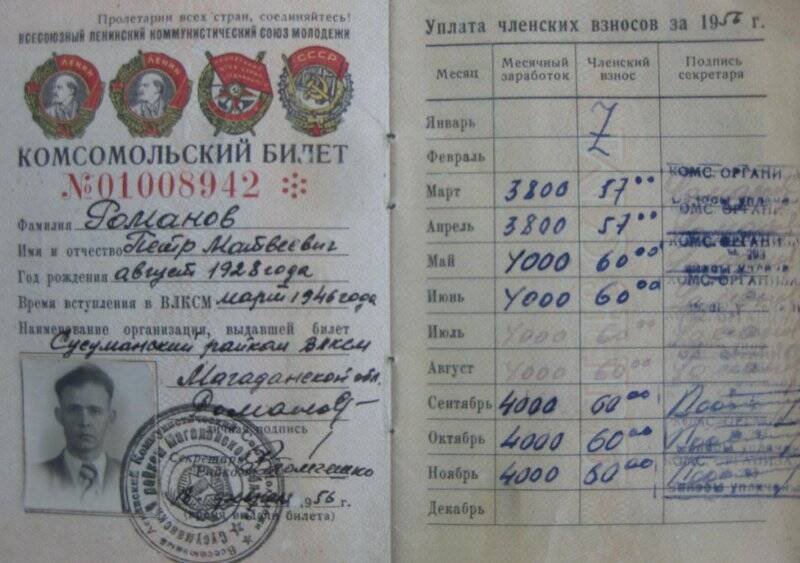 Пролетарии всех стран, соединяйтесь!
ВСЕСОЮЗНЫЙ ЛЕНИНСКИЙ КОММУНИСТИЧЕСКИЙ СОЮЗ МОЛОДЕЖИ
ЛЕНИН
ЛЕНИН
СССР
КОМСОМОЛЬСКИЙ БИЛЕТ
№01008942
Фамилия Романов
Имя и отчество Петр Матвеевич
Год рождения август 1928 года
Время вступления в ВЛКСМ март 1946 года
Наименование организации, выдавшей билет
Сусуманский райком ВЛКСМ
Магаданской обл.
Романов
личная подпись
Секретарь
Райкома
1956 г.
(время выдачи билета)
Уплата членских взносов за 1956 г.
Месяц Месячный заработок Членский взнос Подпись секретаря
Январь
Февраль
Март 3800 57 00
КОМС. ОРГАНИ
Апрель 3800 57 00
КОМС. ОРГАНИ
Май 4000 60 00
КОМС. ОРГАНИ
Июнь 4000 60 00
КОМС. ОРГАНИЗА
Июль 4000 60 00
Август 4000 60 00
Сентябрь 4000 60 00
Октябрь 4000 60 00
Ноябрь 4000 60 00
Декабрь